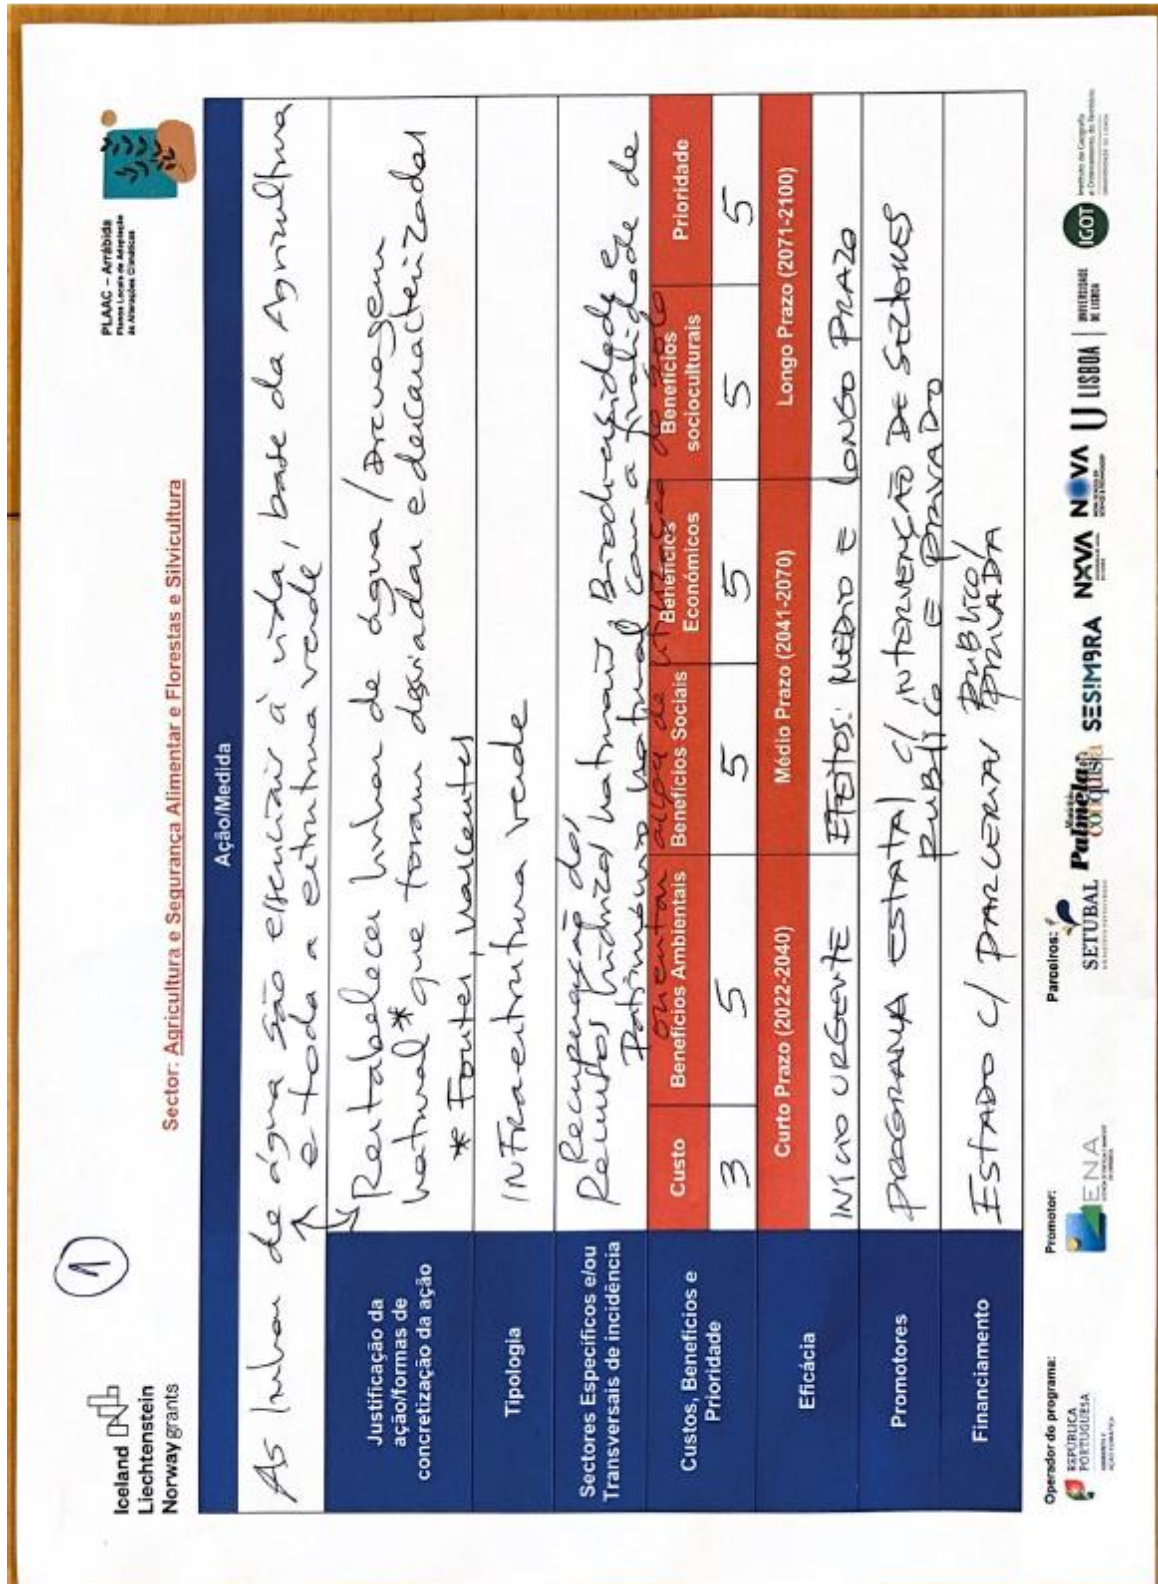 Iceland
Liechtenstein
Norway grants
1
PLAAC – Arrábida
Planos Locais de Adaptação
às Alterações Climáticas
Sector: Agricultura e Segurança Alimentar e Florestas e Silvicultura
Ação/Medida
As linhas de água são essenciais à vida, base da Agricultura
e toda a estrutura verde
Justificação da
ação/formas de
concretização da ação
Restabelecer linhas de água / Drenagem
natural * que foram desviadas e descaracterizadas
* Fontes, nascentes
Tipologia
INFraestrutura verde
Sectores Específicos e/ou
Transversais de incidência
Recuperação dos
Recursos hídricos naturais, Biodiversidade e
Património natural com a finalidade de
orientar de utilização do solo
Custos, Benefícios e
Prioridade
Custo
Benefícios Ambientais
Benefícios Sociais
Benefícios
Económicos
Benefícios
socioculturais
Prioridade
3
5
5
5
5
5
Eficácia
Curto Prazo (2022-2040)
Médio Prazo (2041-2070)
Longo Prazo (2071-2100)
INÍCIO URGENTE
EFEITOS: MÉDIO E LONGO PRAZO
Promotores
PROGRAMA ESTATAL C/ INTERVENÇÃO DE SECTORES
PUBLICO E PRIVADO
Financiamento
ESTADO C/ PARCERIAS PUBLICO/
PRIVADA
Operador do programa:
REPÚBLICA
PORTUGUESA
AMBIENTE E
AÇÃO CLIMÁTICA
Promotor:
ENA
Parceiros:
SETUBAL
Palmela
conquista
SESIMBRA
NOVA
NOVA
U LISBOA
UNIVERSIDADE
DE LISBOA
IGOT
Instituto de Geografia
e Ordenamento do Território